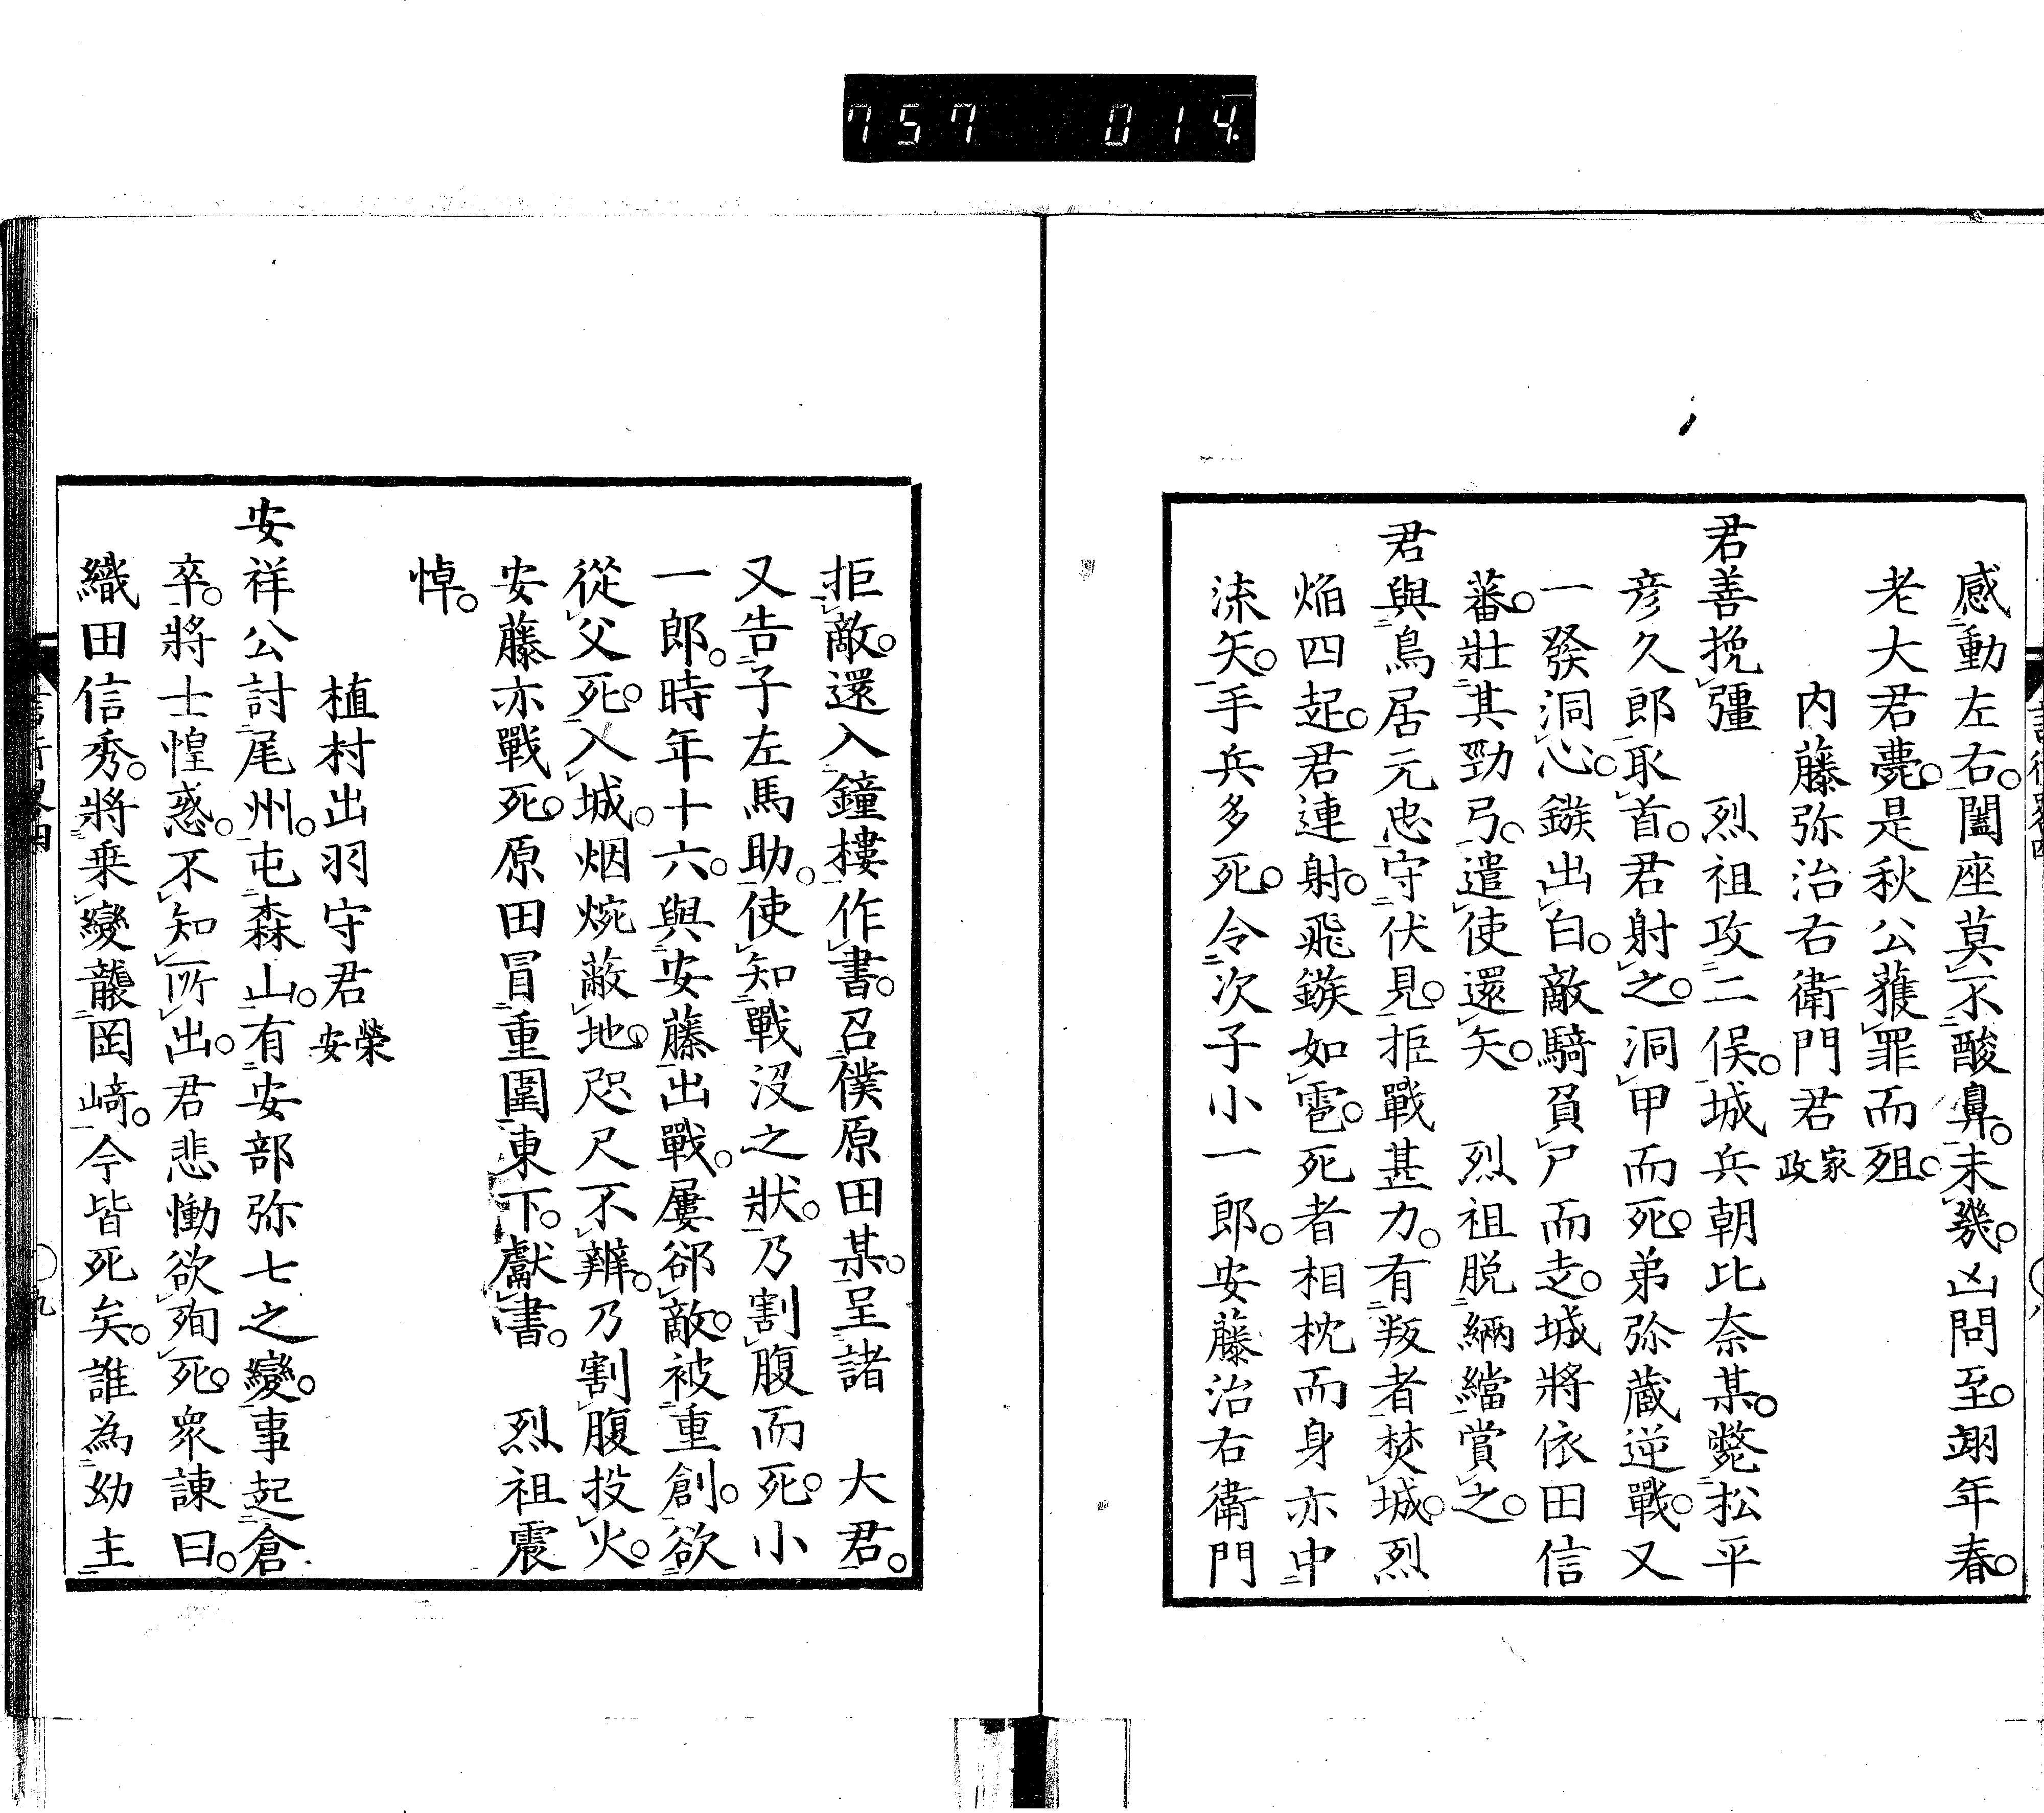 757 014
感動左右。闔座莫不酸鼻。未幾。凶問至。翊年春。
老大君薨。是秋公獲罪而殂。
内藤弥治右衛門君 家政
君善挽彊 烈祖攻二俣。城兵朝比奈某。斃松平
彦久郎取首。君射之。洞甲而死。弟弥蔵逆戰。又
一發洞心。鏃出白。敵騎負尸而走。城將依田信
蕃。壯其勁弓。遣使還矢。 烈祖脱緉繿賞之。
君與鳥居元忠守伏見。拒戰甚力。有叛者焚城。烈
焔四起。君連射。飛鏃如雹。死者相枕而身亦中
流矢。手兵多死。令次子小一郎。安藤治右衛門
拒敵。還入鐘樓。作書。召僕原田某。呈諸 大君。
又告子左馬助。使知戰沒之狀。乃割腹而死。小
一郎。時年十六。與安藤出戰。屢郤敵。被重創。欲
從父死。入城。烟焥蔽地。咫尺不辨。乃割腹投火。
安藤亦戰死。原田冒重圍東下。獻書。 烈祖震
悼。
植村出羽守君 榮安
安祥公討尾州。屯森山。有安部弥七之變。事起倉
卒。將士惶惑。不知所出。君悲慟欲殉死。衆諫曰。
織田信秀。將乗變襲岡﨑。今皆死矣。誰為幼主